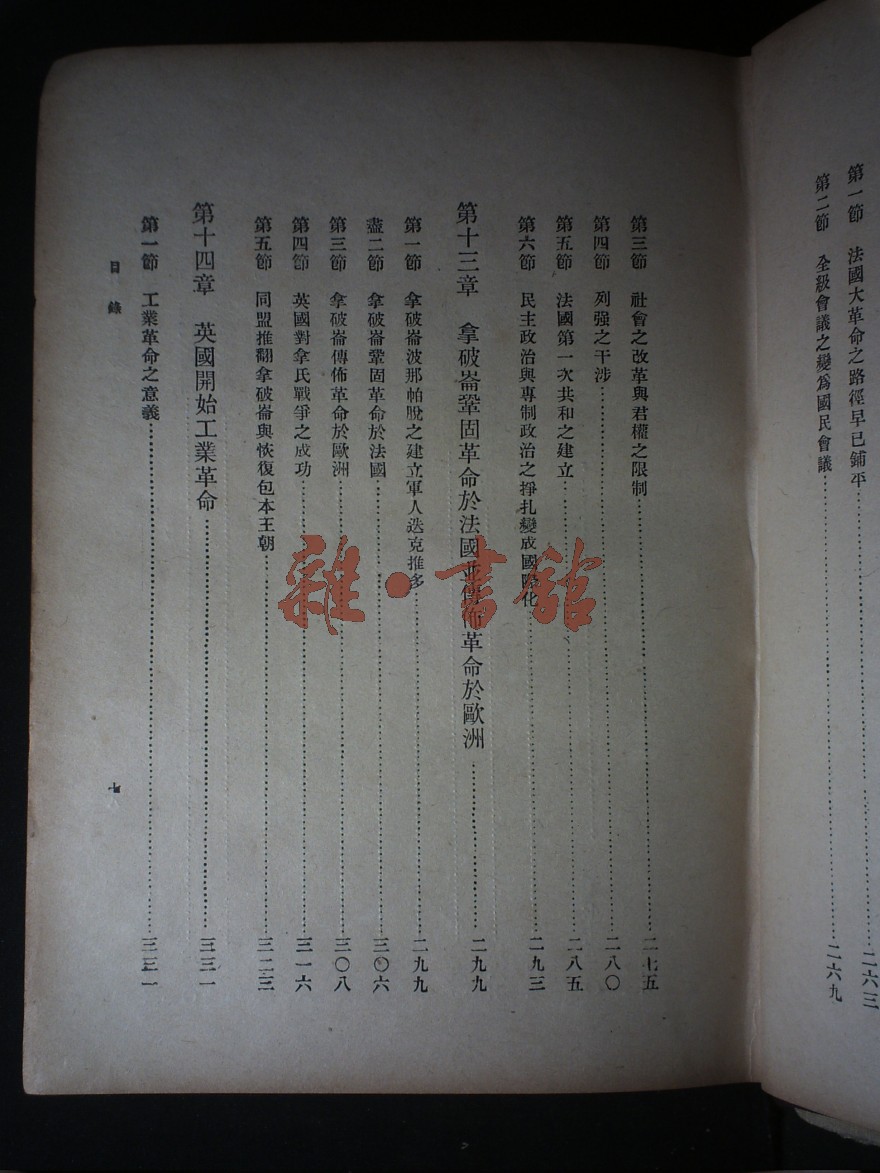 第一節 法國大革命之路徑早已鋪平……二六三
第二節 全級會議之變爲國民會議……二六九
第三節 社會之改革與君權之限制……二七五
第四節 列强之干涉……二八〇
第五節 法國第一次共和之建立……二八五
第六節 民主政治與專制政治之掙扎變成國際化……二九三
第十三章 拿破崙鞏固革命於法國並傳佈革命於歐洲……二九九
第一節 拿破崙波那帕脫之建立軍人迭克推多……二九九
盡二節 拿破崙鞏固革命於法國……三〇六
第三節 拿破崙傳佈革命於歐洲……三〇八
第四節 英國對拿氏戰爭之成功……三一六
第五節 同盟推翻拿破崙與恢復包本王朝……三二三
第十四章 英國開始工業革命……三三一
第一節 工業革命之意義……三三一
目錄
七
雜·書館